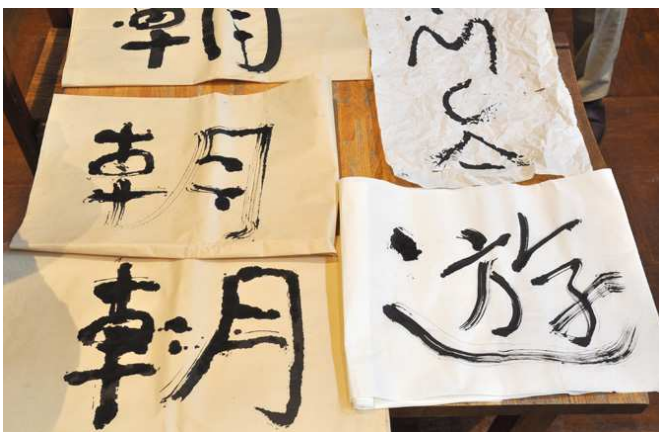 朝
朝
朝
遊